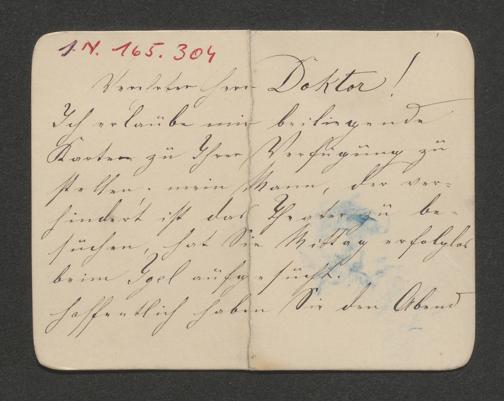 I. N. 165.304
Verehrter Herr Doktor!
Ich erlaube mir beiliegende
Karten zu Ihrer Verfügung zu
stellen. mein Mann, der ver=
hindert ist das Theater zu be=
suchen, hat Sie Mittag erfolglos
beim Igel aufgesucht.
hoffentlich haben Sie den Abend